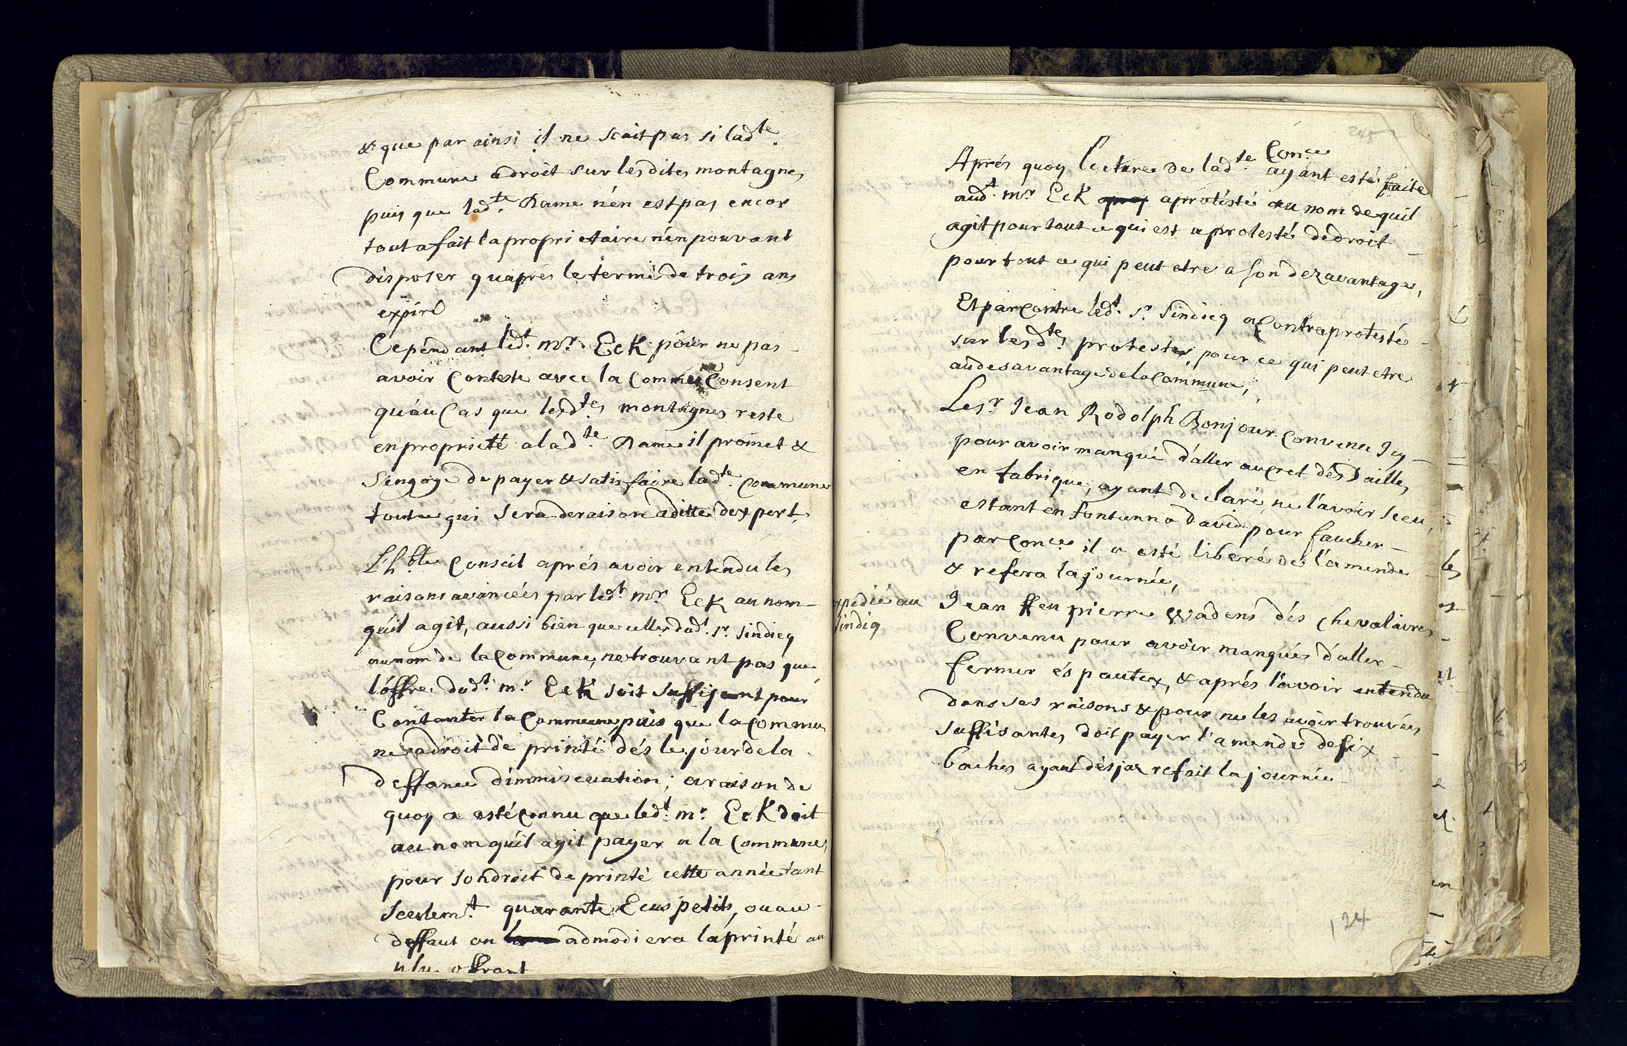 & que par ainsi il ne scait pas si lad.te
Commune a droit sur lesdites montagnes
puis que lad.te Dame n'en est pas encor
tout a fait la proprietaire n'en pouvant
disposer qu'aprés le terme de trois ans
expiré
Cependant led.t m.r Eck pour ne pas
avoir Conteste avec la Comm.e Consent
qu'au Cas que lesd.tes montagnes reste
en proprieté a lad.te Dame il promet &
s'engage de payer & satisfaire lad.te Commune
tout ce qui sera de raison a ditte d'expert,
L'h.ble Conseil aprés avoir entendu les
raisons avancées par led.t m.r Eck au nom
qu'il agit, aussi bien que celles dud.t s.r Sindicq
au nom de la Commune, ne trouvant pas que
l'offre dud.t m.r Eck soit suffisant pour
Contanter la Commune puis que la Commu
ne a droit de printé dés le jour de la
deffance d'immiscuation; a raison de
quoy a esté Connu que led.t m.r Eck doit
au nom qu'il agit payer a la Commune
pour son droit de printé cette année tant
seulem.t quarante Ecus petits, ou au
deffaut on admodiera la printé au
plus offrant
245
Aprés quoy lecture de lad.te Con.ce ayant esté faite
aud.t m.r Eck a protesté au nom de quil
agit pour tout ce qui est a protesté de droit
pour tout ce qui peut etre a son dezavantage,
Et par Contre led.t s.r Sindicq a Contreprotesté
sur lesd.tes protestes, pour ce qui peut etre
au desavantage de la Commune,
Le s.r Jean Rodolph Bonjour Convenu Icy
pour avoir manqué d'aller au cret des Dailles
en fabrique, ayant declaré, ne l'avoir sceu,
estant en fontanna David pour faucher
par Con.ce il a esté liberé de l'amende
& refera la journée,
expedié au
Sindiq
Jean ffeu pierre Wadens des chevalaires
Convenu pour avoir manqués d'aller
fermer és pautex, & aprés l'avoir entendu
dans ses raisons & pour ne les avoir trouvées
suffisantes doit payer l'amende de six
baches ayant desjaz refait la journée
124